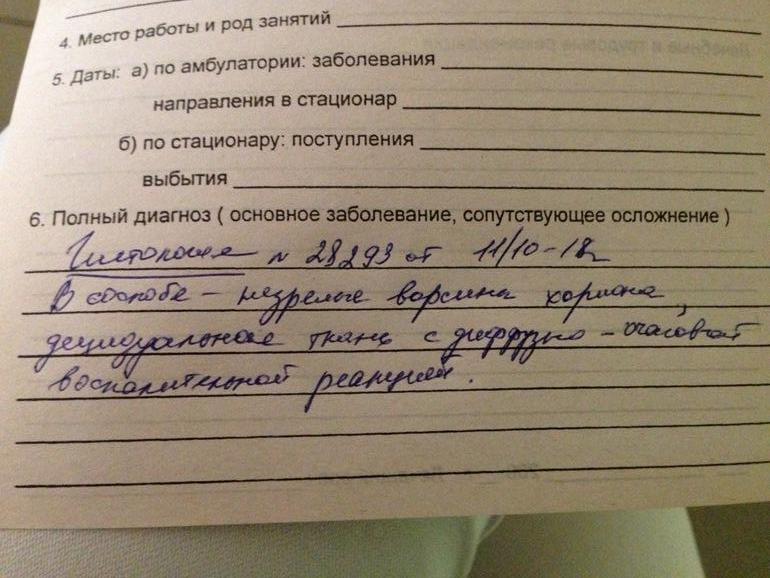 4. Место работы и род занятий
5. Даты: а) по амбулатории: заболевания
направления в стационар
б) по стационару: поступления
выбытия
6. Полный диагноз ( основное заболевание, сопутствующее осложнение )
Гистология N 28293 от 11/10-18г
В соскобе - незрелые ворсины хориона,
децидуальная ткань с диффузно - очаговой
воспалительной реакцией.